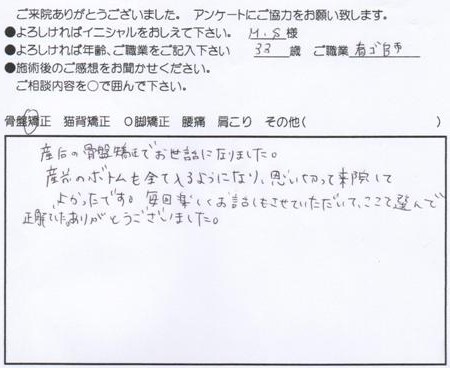 ご来院ありがとうございました。 アンケートにご協力をお願い致します。
●よろしければイニシャルをおしえて下さい。 M.S 様
●よろしければ年齢、ご職業をご記入下さい 33 歳 ご職業 看ゴ師
●施術後のご感想をお聞かせください。
ご相談内容を○で囲んで下さい。
骨盤矯正 猫背矯正 O脚矯正 腰痛 肩こり その他( )
産后の骨盤矯正でお世話になりました。
産前のボトムも全て入るようになり、思い切って来院して
よかったです。毎回楽しくお話しもさせていただいて、ここを選んで
正解でした。ありがとうございました。